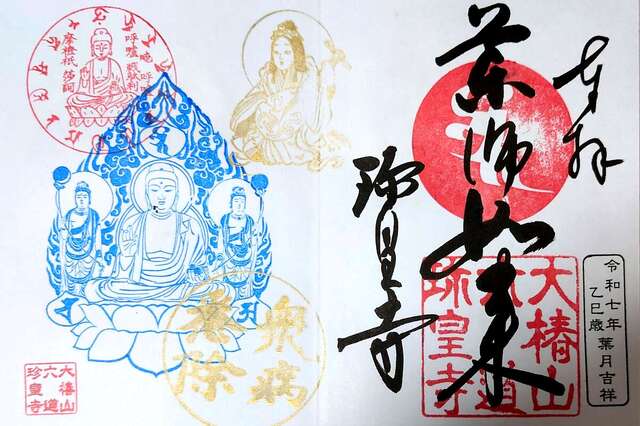 奉拝
薬師如来
珎皇寺
大椿山
六道
珎皇寺
令和七年
乙巳歳 葉月吉祥
衆病
悉除
大椿山
六道
珍皇寺